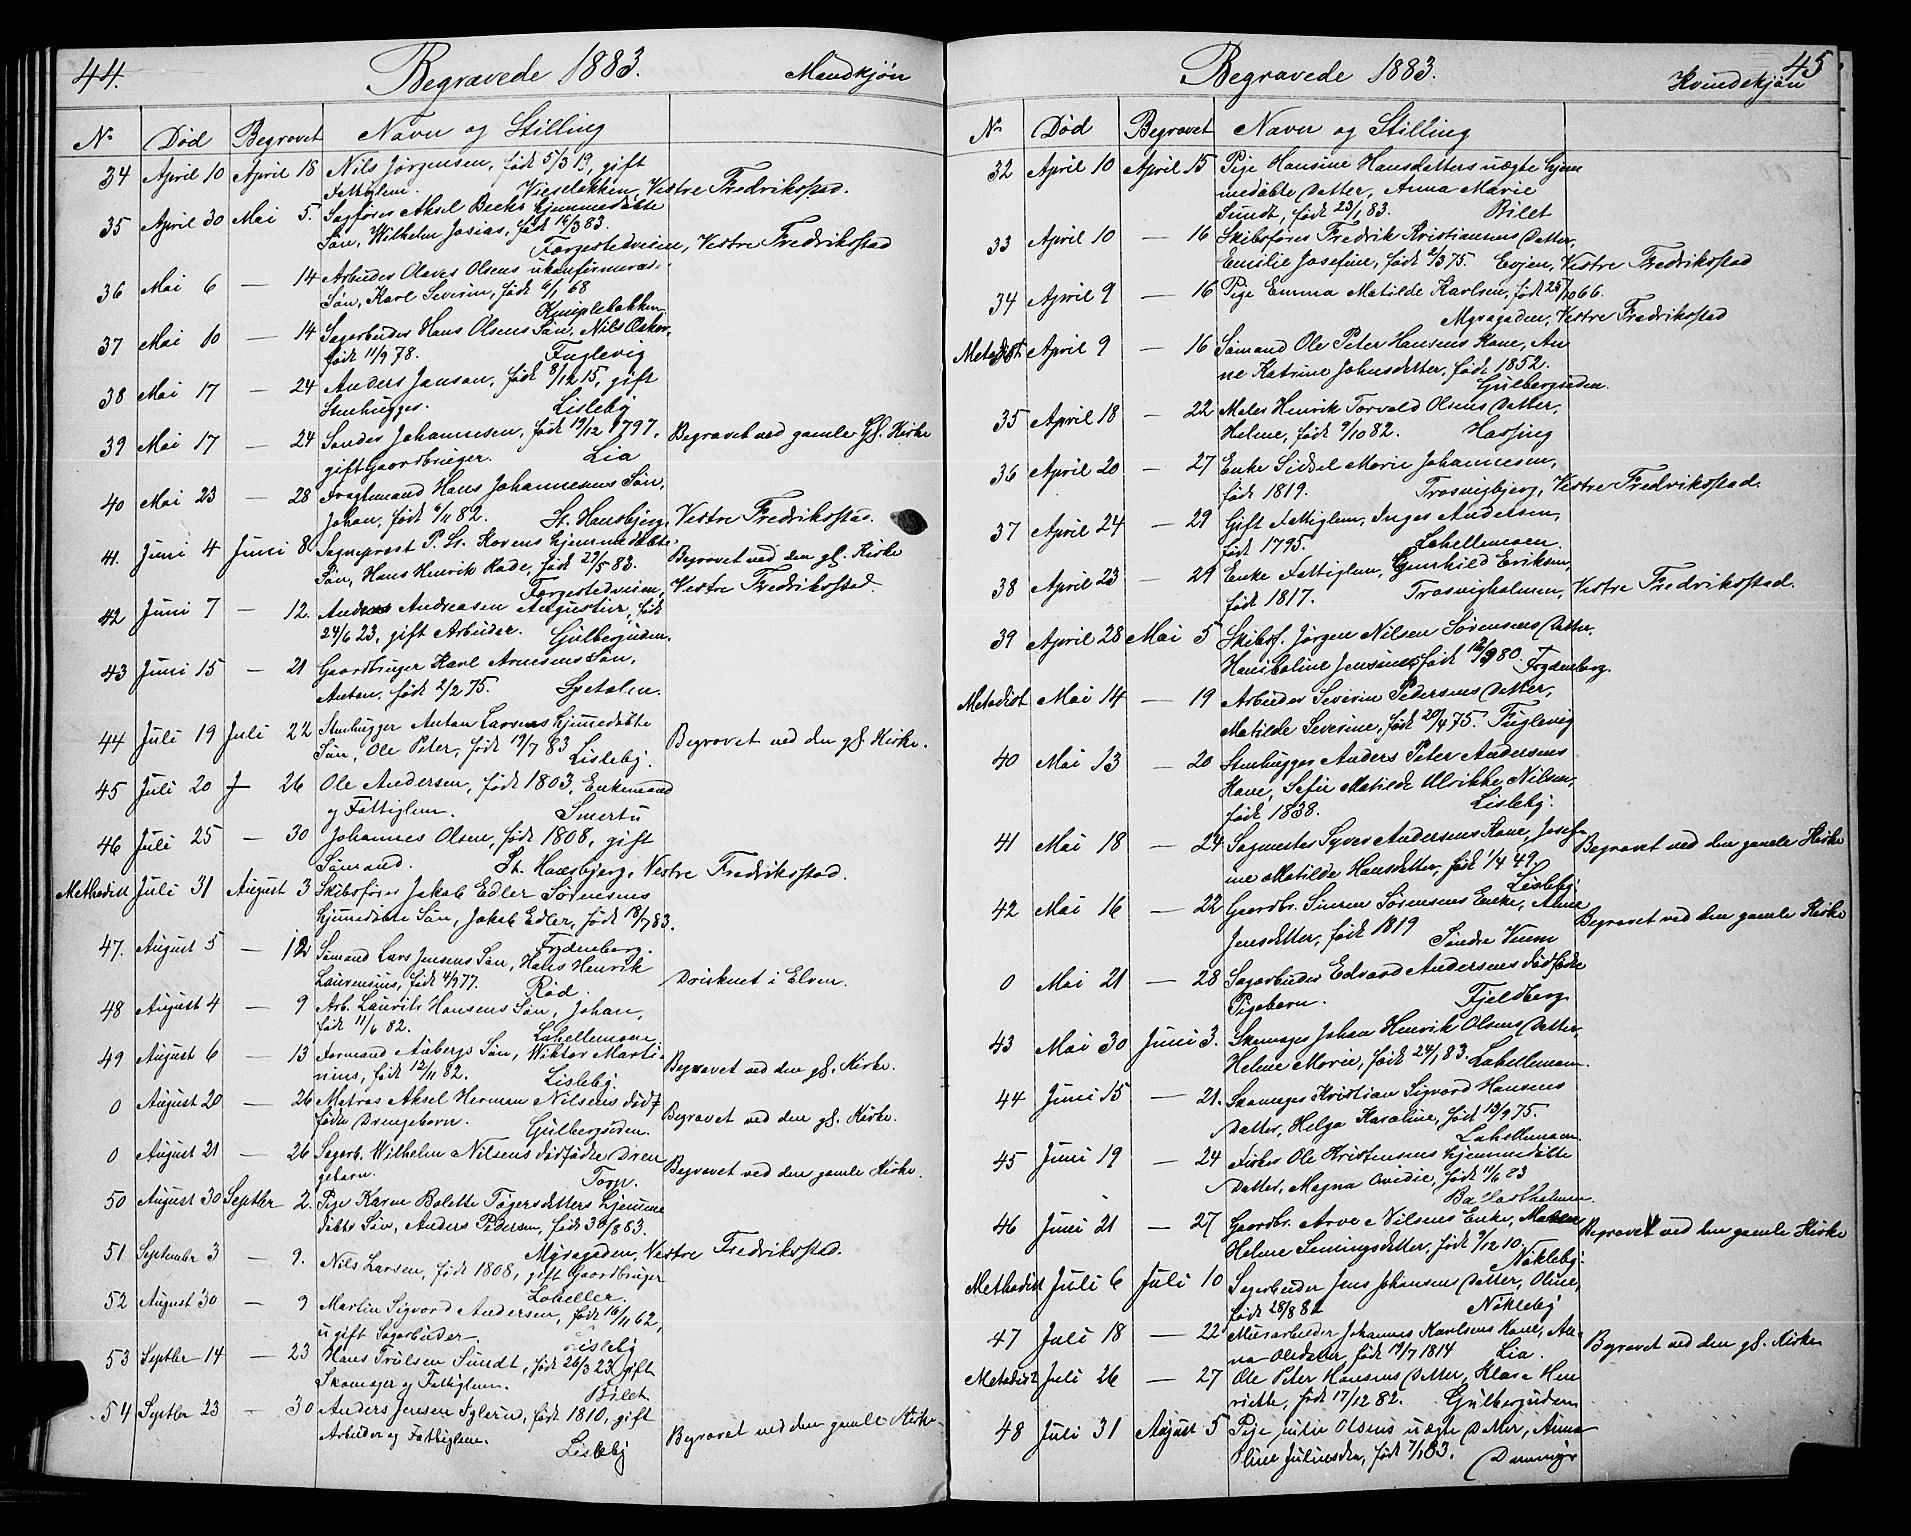 44.
Begravede 1883.
Mandkjøn
No Død Begravet Navn og Stilling
34 April 10 April 18 Nils Jørgensen, født 5/3 19, gift
Fattiglem. Vieselakken, Vestre Fredrikstad.
35 April 30 Mai 5. Sagfører Aksel Becks hjemmedøbte
Søn, Wilhelm Josias, født 16/3 83.
Forgestedveien, Vestre Fredrikstad
36 Mai 6 — 14 Arbeider Olaves Olsens ukonfirmerede
Søn, Karl Severin, født 6/1 68
Kniplebakken
37 Mai 10 — 14 Sagarbeider Hans Olsens Søn, Nils Oskar,
født 11/9 78. Fuglevig
38 Mai 17 — 24 Anders Janson, født 8/12 15, gift
Stenhugger. Lisleby
39 Mai 17 — 24 Sander Johannesen, født 19/12 1797, Begravet ved gamle Gl. Kirke
gift Gaardbruger. Lia
40 Mai 23 — 28 Fragtemand Hans Johannesens Søn,
Johan, født 6/11 82. St. Hansbjerg, Vestre Fredrikstad.
41. Juni 4 Juni 8 Sogneprest P. St. Korens hjemmedøbte Begravet ved den gl. Kirke
Søn, Hans Henrik Rode, født 29/5 83.
Forgestedveien, Vestre Fredrikstad.
42 Juni 7 — 12. Anders Andreasen Augustin, født
24/6 23, gift Arbeider. Gulbergsiden.
43 Juni 15 — 21 Gaardbruger Karl Arnesens Søn,
Anton, født 2/2 75. Spetalen.
44 Juli 19 Juli 22 Stenhugger Anton Larsens hjemmedøbte
Søn, Ole Peter, født 19/7 83 Lisleby. Begravet ved den gl. Kirke.
45 Juli 20 — 26 Ole Andersen, født 1803, Enkemand
og Fattiglem. Smertu
46 Juli 25 — 30 Johannes Olsen, født 1808, gift
Sømand. St. Hansbjerg, Vestre Fredrikstad.
Methodist Juli 31 August 3 Skibsfører Jakob Edler Sørensens
hjemmedøbte Søn, Jakob Edler, født 18/7 83.
Frydenberg.
47. August 5 — 12 Sømand Lars Jensens Søn, Hans Henrik
Laurensius, født 4/9 77. Rød. Druknet i Elven.
48 August 4 — 9 Arb. Laurits Hansens Søn, Johan,
født 11/6 82. Lahellemoen
49 August 6 — 13 Formand Aabergs Søn, Wiktor Marti-
nius, født 12/11 82. Lisleby. Begravet ved den gl. Kirke.
0 August 20 — 26 Matros Aksel Herman Nilsens død-
fødte Drengebarn. Gulbergsiden. Begravet ved den gl. Kirke.
0 August 21 — 26 Sagarb. Wilhelm Nilsens dødfødte Dren
gebarn. Torp. Begravet ved den gamle Kirke.
50 August 30 Septbr 2. Pige Karen Bolette Tøgersdatters hjemme
døbte Søn, Anders Pedersen, født 30/8 83.
Myragaden, Vestre Fredrikstad.
51 September 3 — 9. Nils Larsen, født 1808, gift Gaardbruger
Laheller.
52 August 30 — 9 Martin Sigvard Andersen, født 16/11 62,
ugift Sagarbeider. Lisleby
53 Septbr 14 — 23 Hans Trulsen Sundt, født 26/3 23, gift
Skomager og Fattiglem. Bilet
54 Septbr 23 — 30 Anders Jensen, født 1810, gift
Arbeider og Fattiglem. Lisleby Begravet ved den gamle Kirke
45
Begravede 1883.
Kvindekjøn
No Død Begravet Navn og Stilling
32 April 10 April 15 Pige Hansine Hansdatters uægte hjem
medøbte Datter, Anna Marie
Sundt, født 23/1 83. Bilet
33 April 10 — 16 Skibsfører Fredrik Kristiansens Datter,
Emilie Josefine, født 2/3 75. Evjen, Vestre Fredrikstad
34 April 9 — 16 Pige Emma Matilde Karlsen, født 25/10 66.
Myragaden, Vestre Fredrikstad
Metodist April 9 — 16 Sømand Ole Peter Hansens Kone, An
ne Katrine Johnsdatter, født 1852.
Gulbergsiden.
35 April 18 — 22 Maler Henrik Torvald Olsens Datter,
Helene, født 9/10 82. Hassing
36 April 20 — 27 Enke Sidsel Marie Johannesen,
født 1819. Trosvigbjerg, Vestre Fredrikstad.
37 April 24 — 29 Gift Fattiglem, Inger Andersen,
født 1795. Lahellemoen.
38 April 23 — 29 Enke Fattiglem, Gunhild Eriksen,
født 1817. Trosvigholmen, Vestre Fredrikstad.
39 April 28 Mai 5 Skibsf. Jørgen Nilsen Sørensens Datter,
Hansboline Jensine, født 16/9 80. Frydenberg.
Metodist Mai 14 — 19 Arbeider Severin Pedersens Datter,
Matilde Severine, født 20/4 75. Fuglevig
40 Mai 13 — 20 Stenhugger Anders Peter Andersens
Kone, Sofie Matilde Ulrikke Nilsen,
født 1838. Lisleby.
41 Mai 18 — 24 Sagmester Syver Andersens Kone, Josef-
ine Matilde Hansdatter, født 1/4 49. Begravet ved den gamle Kirke
Lisleby
42 Mai 16 — 22 Gaardbr. Simen Sørensens Enke, Anne
Jensdatter, født 1819 Søndre Veum Begravet ved den gamle Kirke
0 Mai 21 — 28 Sagarbeider Edvard Andersens dødfødte
Pigebarn. Fjeldberg
43 Mai 30 Juni 3. Skomager Johan Henrik Olsens Datter,
Helene Marie, født 24/1 83. Lahellemoen.
44 Juni 15 — 21. Skomager Kristian Sigvard Hansens
Datter, Helga Karoline, født 13/9 75.
Lahellemoen
45 Juni 19 — 24 Fisker Ole Kristensens hjemmedøbte
Datter, Magna Ovidie, født 11/6 83
46 Juni 21 — 27 Gaardbr. Arve Nilsens Enke, Maren
Helene Semingsdatter, født 9/12 10. Begravet ved den gamle Kirke
Nøkleby.
Methodist Juli 6 Juli 10 Sagarbeider Jens Johansens Datter, Oline,
født 28/8 82 Nøkleby
47 Juli 18 — 22 Murarbeider Johannes Karlsens Kone, An-
na Olesdatter, født 19/7 1814 Lia. Begravet ved den gl. Kirke
Metodist Juli 26 — 27 Ole Peter Hansens Datter, Klara Hen
riette, født 17/12 82. Gulbergsiden
48 Juli 31 August 5 Pige Julie Olsens uægte Datter, Anna
Oline Juliusdatter, født 7/1 83.